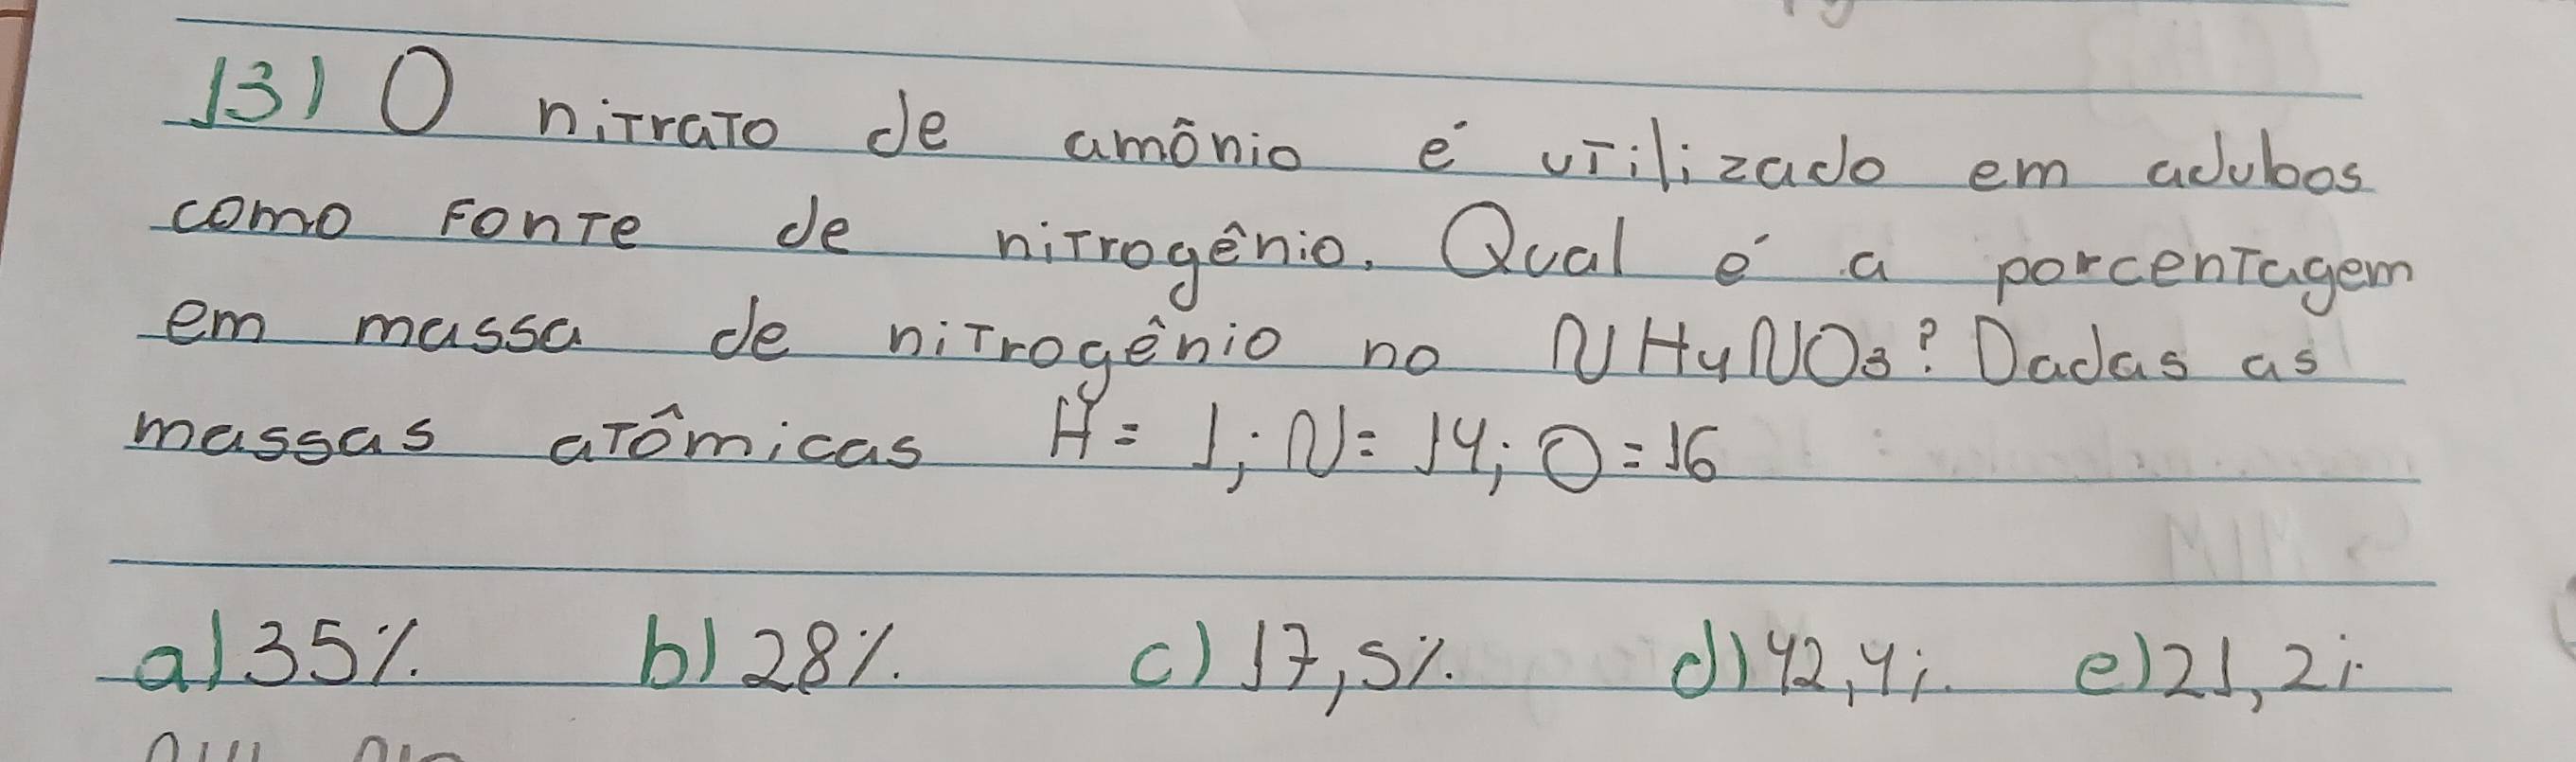 13) O nitrato de amônio é utilizado em adubos
como fonte de nitrogênio. Qual é a porcentagem
em massa de nitrogênio no NH4NO3? Dadas as
massas atômicas H = 1; N = 14; O = 16
a) 35% b) 28% c) 17,5% d) 42,4% e) 21,2%